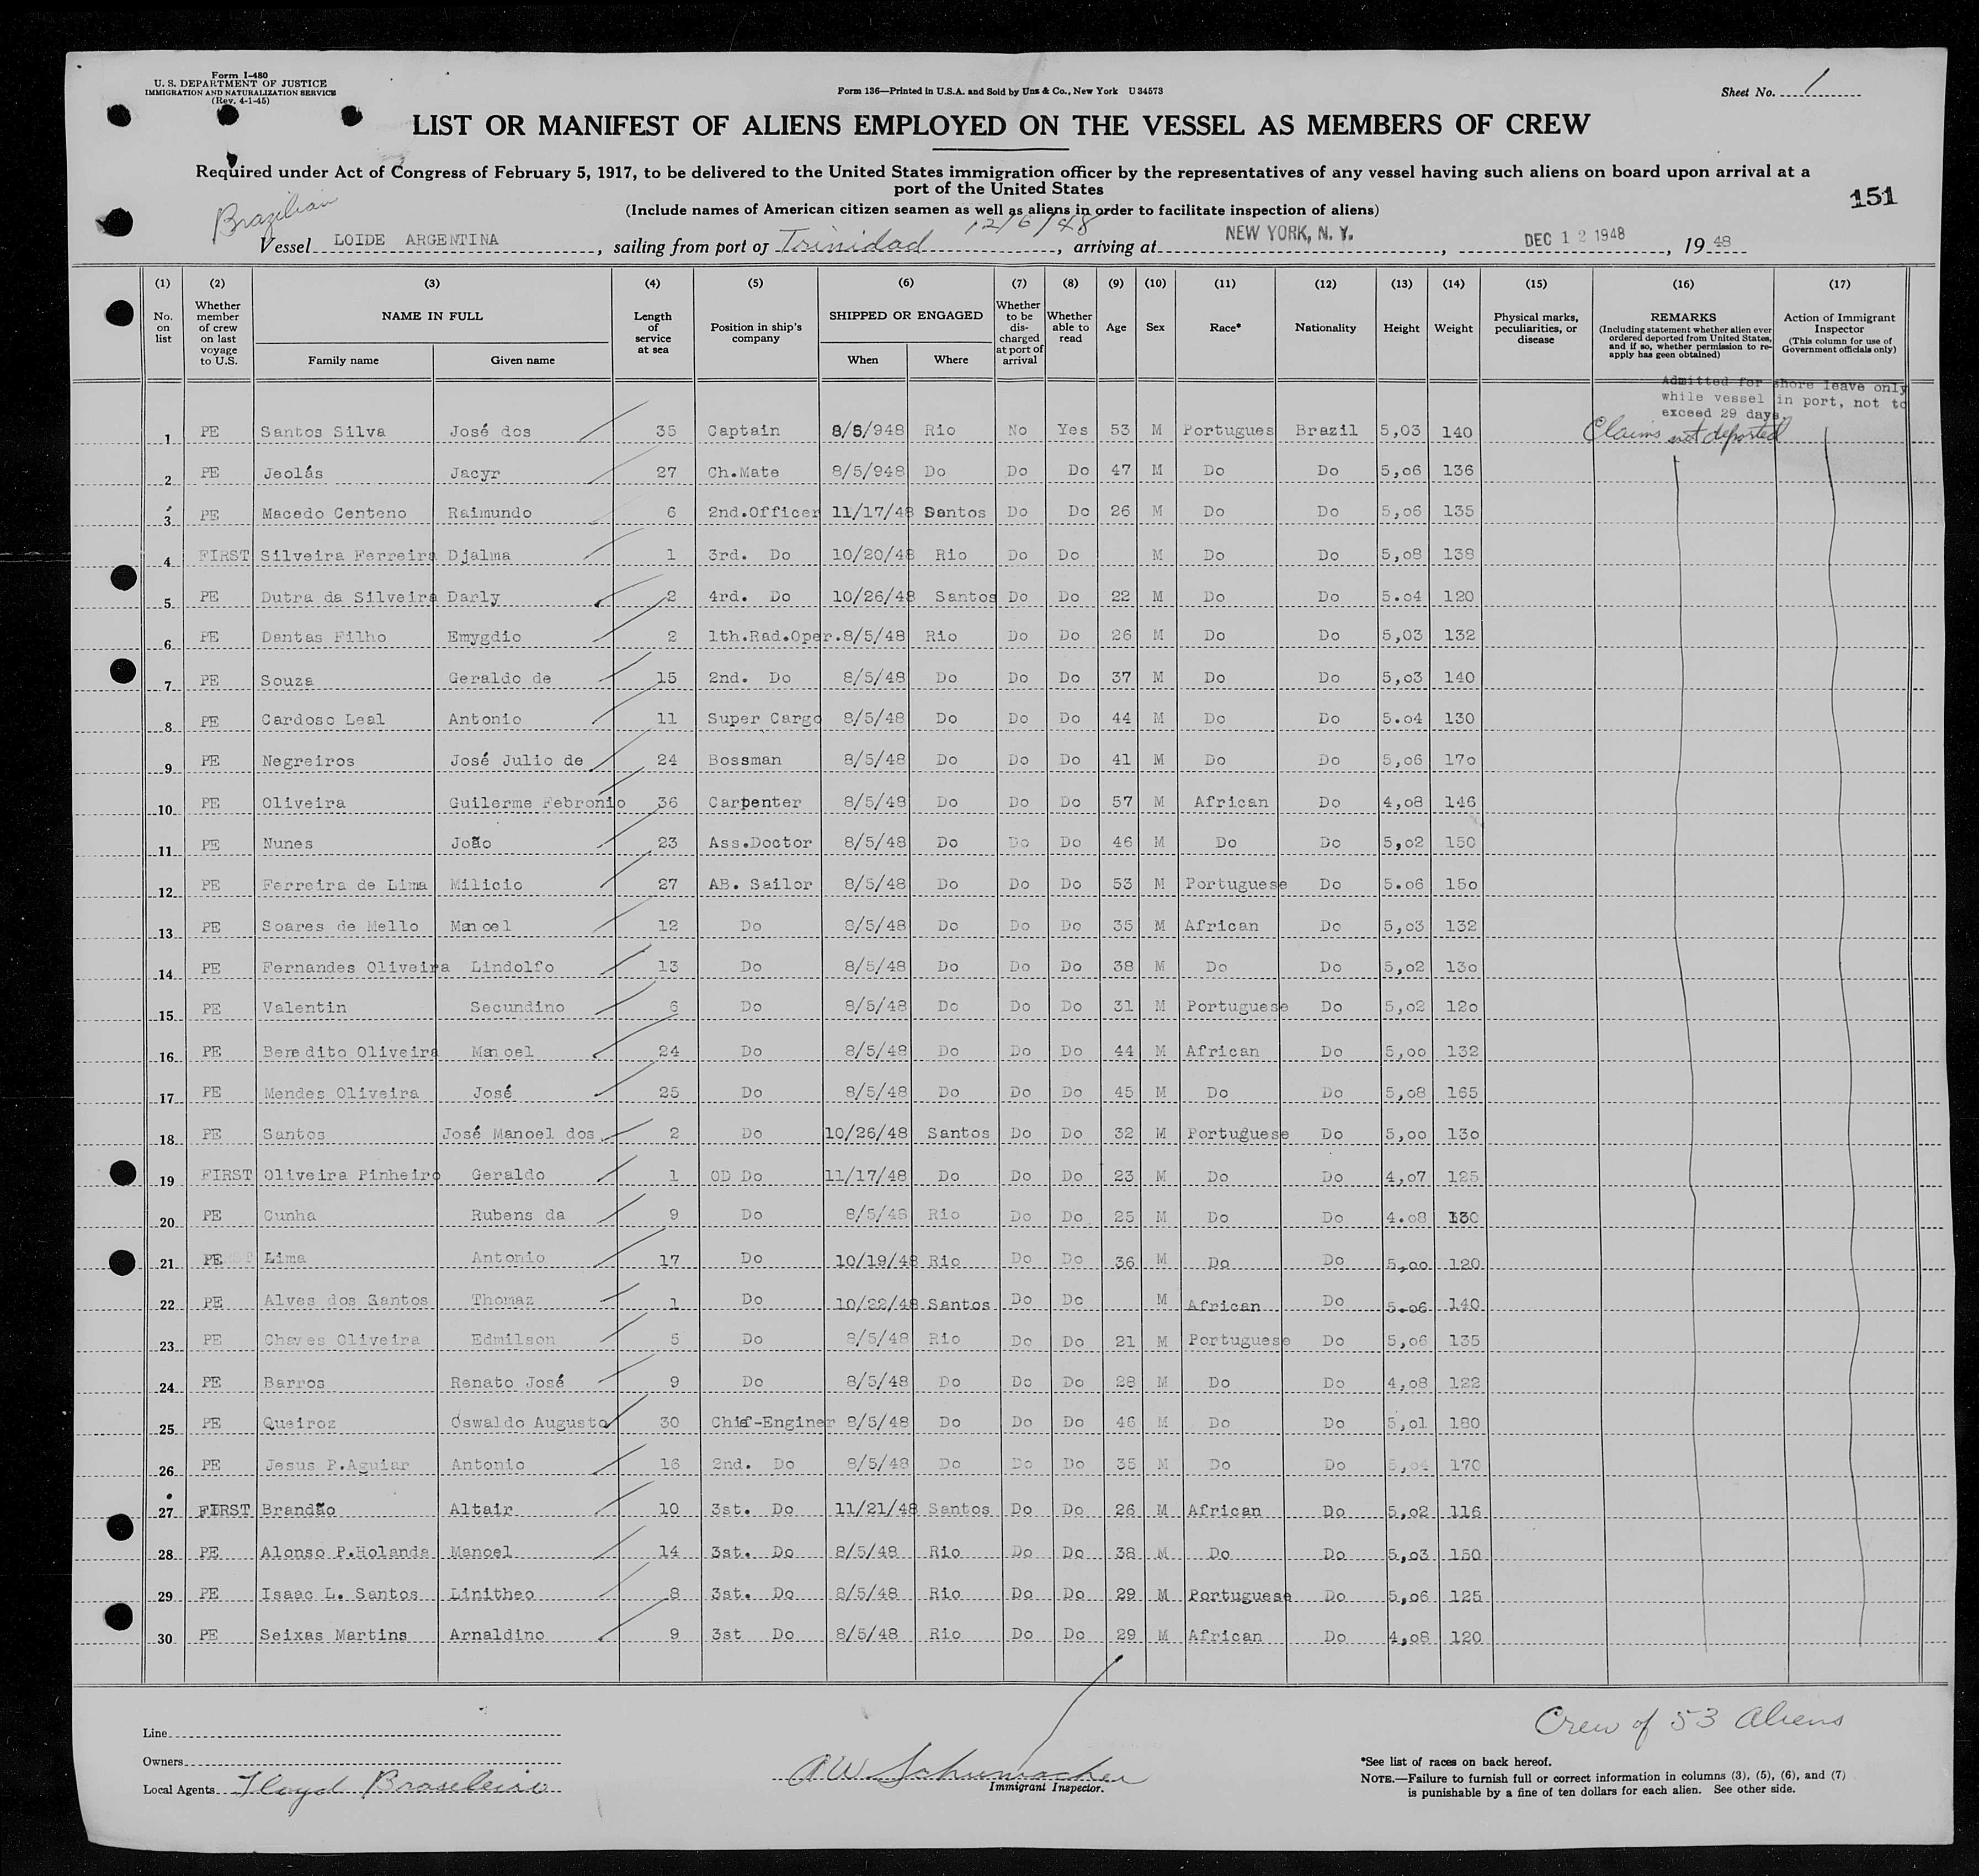 Form I-480
U. S. DEPARTMENT OF JUSTICE
IMMIGRATION AND NATURALIZATION SERVICE
(Rev. 4-1-45)
Form 136—Printed in U.S.A. and Sold by Unz & Co., New York U 34573
Sheet No. 1
LIST OR MANIFEST OF ALIENS EMPLOYED ON THE VESSEL AS MEMBERS OF CREW
Required under Act of Congress of February 5, 1917, to be delivered to the United States immigration officer by the representatives of any vessel having such aliens on board upon arrival at a
port of the United States
151
(Include names of American citizen seamen as well as aliens in order to facilitate inspection of aliens)
Brazilian
12/6/48
Vessel LOIDE ARGENTINA, sailing from port of Trinidad, arriving at NEW YORK, N. Y., DEC 12 1948, 19 48
(1) (2) (3) (4) (5) (6) (7) (8) (9) (10) (11) (12) (13) (14) (15) (16) (17)
No. on list
Whether member of crew on last voyage to U.S.
NAME IN FULL
Family name
Given name
Length of service at sea
Position in ship's company
SHIPPED OR ENGAGED
When
Where
Whether to be discharged at port of arrival
Whether able to read
Age
Sex
Race*
Nationality
Height
Weight
Physical marks, peculiarities, or disease
REMARKS
(Including statement whether alien ever ordered deported from United States, and if so, whether permission to re-apply has geen obtained)
Action of Immigrant Inspector
(This column for use of Government officials only)
Admitted for shore leave only
while vessel in port, not to
exceed 29 days.
Claims not deported
1 PE Santos Silva José dos 35 Captain 8/5/948 Rio No Yes 53 M Portugues Brazil 5,03 140
2 PE Jeolás Jacyr 27 Ch.Mate 8/5/948 Do Do Do 47 M Do Do 5,06 136
3 PE Macedo Centeno Raimundo 6 2nd.Officer 11/17/48 Santos Do Do 26 M Do Do 5,06 135
4 FIRST Silveira Ferreira Djalma 1 3rd. Do 10/20/48 Rio Do Do M Do Do 5,08 138
5 PE Dutra da Silveira Darly 2 4rd. Do 10/26/48 Santos Do Do 22 M Do Do 5.04 120
6 PE Dantas Filho Emygdio 2 1th.Rad.Oper. 8/5/48 Rio Do Do 26 M Do Do 5,03 132
7 PE Souza Geraldo de 15 2nd. Do 8/5/48 Do Do Do 37 M Do Do 5,03 140
8 PE Cardoso Leal Antonio 11 Super Cargo 8/5/48 Do Do Do 44 M Do Do 5.04 130
9 PE Negreiros José Julio de 24 Bossman 8/5/48 Do Do Do 41 M Do Do 5,06 170
10 PE Oliveira Guilerme Febronio 36 Carpenter 8/5/48 Do Do Do 57 M African Do 4,08 146
11 PE Nunes João 23 Ass.Doctor 8/5/48 Do Do Do 46 M Do Do 5,02 150
12 PE Ferreira de Lima Milicio 27 AB. Sailor 8/5/48 Do Do Do 53 M Portuguese Do 5.06 150
13 PE Soares de Mello Manoel 12 Do 8/5/48 Do Do Do 35 M African Do 5,03 132
14 PE Fernandes Oliveira Lindolfo 13 Do 8/5/48 Do Do Do 38 M Do Do 5,02 130
15 PE Valentin Secundino 6 Do 8/5/48 Do Do Do 31 M Portuguese Do 5,02 120
16 PE Benedito Oliveira Manoel 24 Do 8/5/48 Do Do Do 44 M African Do 5,00 132
17 PE Mendes Oliveira José 25 Do 8/5/48 Do Do Do 45 M Do Do 5,08 165
18 PE Santos José Manoel dos 2 Do 10/26/48 Santos Do Do 32 M Portuguese Do 5,00 130
19 FIRST Oliveira Pinheiro Geraldo 1 OD Do 11/17/48 Do Do Do 23 M Do Do 4,07 125
20 PE Cunha Rubens da 9 Do 8/5/48 Rio Do Do 25 M Do Do 4.08 130
21 PE Lima Antonio 17 Do 10/19/48 Rio Do Do 36 M Do Do 5,00 120
22 PE Alves dos Santos Thomaz 1 Do 10/22/48 Santos Do Do M African Do 5.06 140
23 PE Chaves Oliveira Edmilson 5 Do 8/5/48 Rio Do Do 21 M Portuguese Do 5,06 135
24 PE Barros Renato José 9 Do 8/5/48 Do Do Do 28 M Do Do 4,08 122
25 PE Queiroz Oswaldo Augusto 30 Chief-Enginer 8/5/48 Do Do Do 46 M Do Do 5,01 180
26 PE Jesus P.Aguiar Antonio 16 2nd. Do 8/5/48 Do Do Do 35 M Do Do 5,04 170
27 FIRST Brandão Altair 10 3st. Do 11/21/48 Santos Do Do 26 M African Do 5,02 116
28 PE Alonso P.Holanda Manoel 14 3st. Do 8/5/48 Rio Do Do 38 M Do Do 5,03 150
29 PE Isaac L. Santos Linitheo 8 3st. Do 8/5/48 Rio Do Do 29 M Portuguese Do 5,06 125
30 PE Seixas Martins Arnaldino 9 3st Do 8/5/48 Rio Do Do 29 M African Do 4,08 120
Crew of 53 Aliens
Line
Owners
Local Agents Lloyd Brasileiro
AW Schumacher
Immigrant Inspector.
*See list of races on back hereof.
NOTE.—Failure to furnish full or correct information in columns (3), (5), (6), and (7)
is punishable by a fine of ten dollars for each alien. See other side.